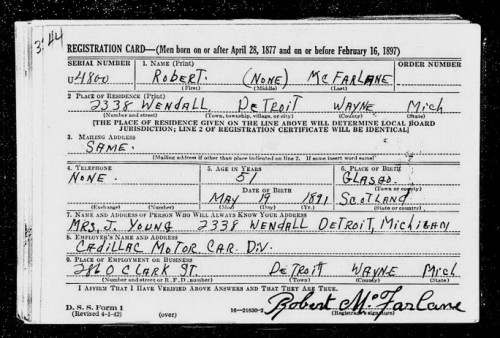 3:44
REGISTRATION CARD—(Men born on or after April 28, 1877 and on or before February 16, 1897)
SERIAL NUMBER 1. NAME (Print) ORDER NUMBER
U 4800 ROBERT. (NONE) MCFARLANE
(First) (Middle) (Last)
2. PLACE OF RESIDENCE (Print)
2338 WENDALL, DETROIT WAYNE MICH
(Number and street) (Town, township, village, or city) (County) (State)
[THE PLACE OF RESIDENCE GIVEN ON THE LINE ABOVE WILL DETERMINE LOCAL BOARD
JURISDICTION; LINE 2 OF REGISTRATION CERTIFICATE WILL BE IDENTICAL]
3. MAILING ADDRESS
SAME.
[Mailing address if other than place indicated on line 2. If same insert word same]
4. TELEPHONE 5. AGE IN YEARS 6. PLACE OF BIRTH
NONE. 51 GLASGO.
DATE OF BIRTH (Town or county)
MAY 19 1891 SCOTLAND
(Exchange) (Number) (Mo.) (Day) (Yr.) (State or country)
7. NAME AND ADDRESS OF PERSON WHO WILL ALWAYS KNOW YOUR ADDRESS
MRS. J. YOUNG 2338 WENDALL DETROIT, MICHIGAN
8. EMPLOYER'S NAME AND ADDRESS
CADILLAC MOTOR CAR. DIV.
9. PLACE OF EMPLOYMENT OR BUSINESS
2860 CLARK ST. DETROIT WAYNE MICH.
(Number and street or R. F. D. number) (Town) (County) (State)
I AFFIRM THAT I HAVE VERIFIED ABOVE ANSWERS AND THAT THEY ARE TRUE.
D. S. S. Form 1 Robert McFarlane
(Revised 4-1-42) (over) 16—21630-2 (Registrant's signature)